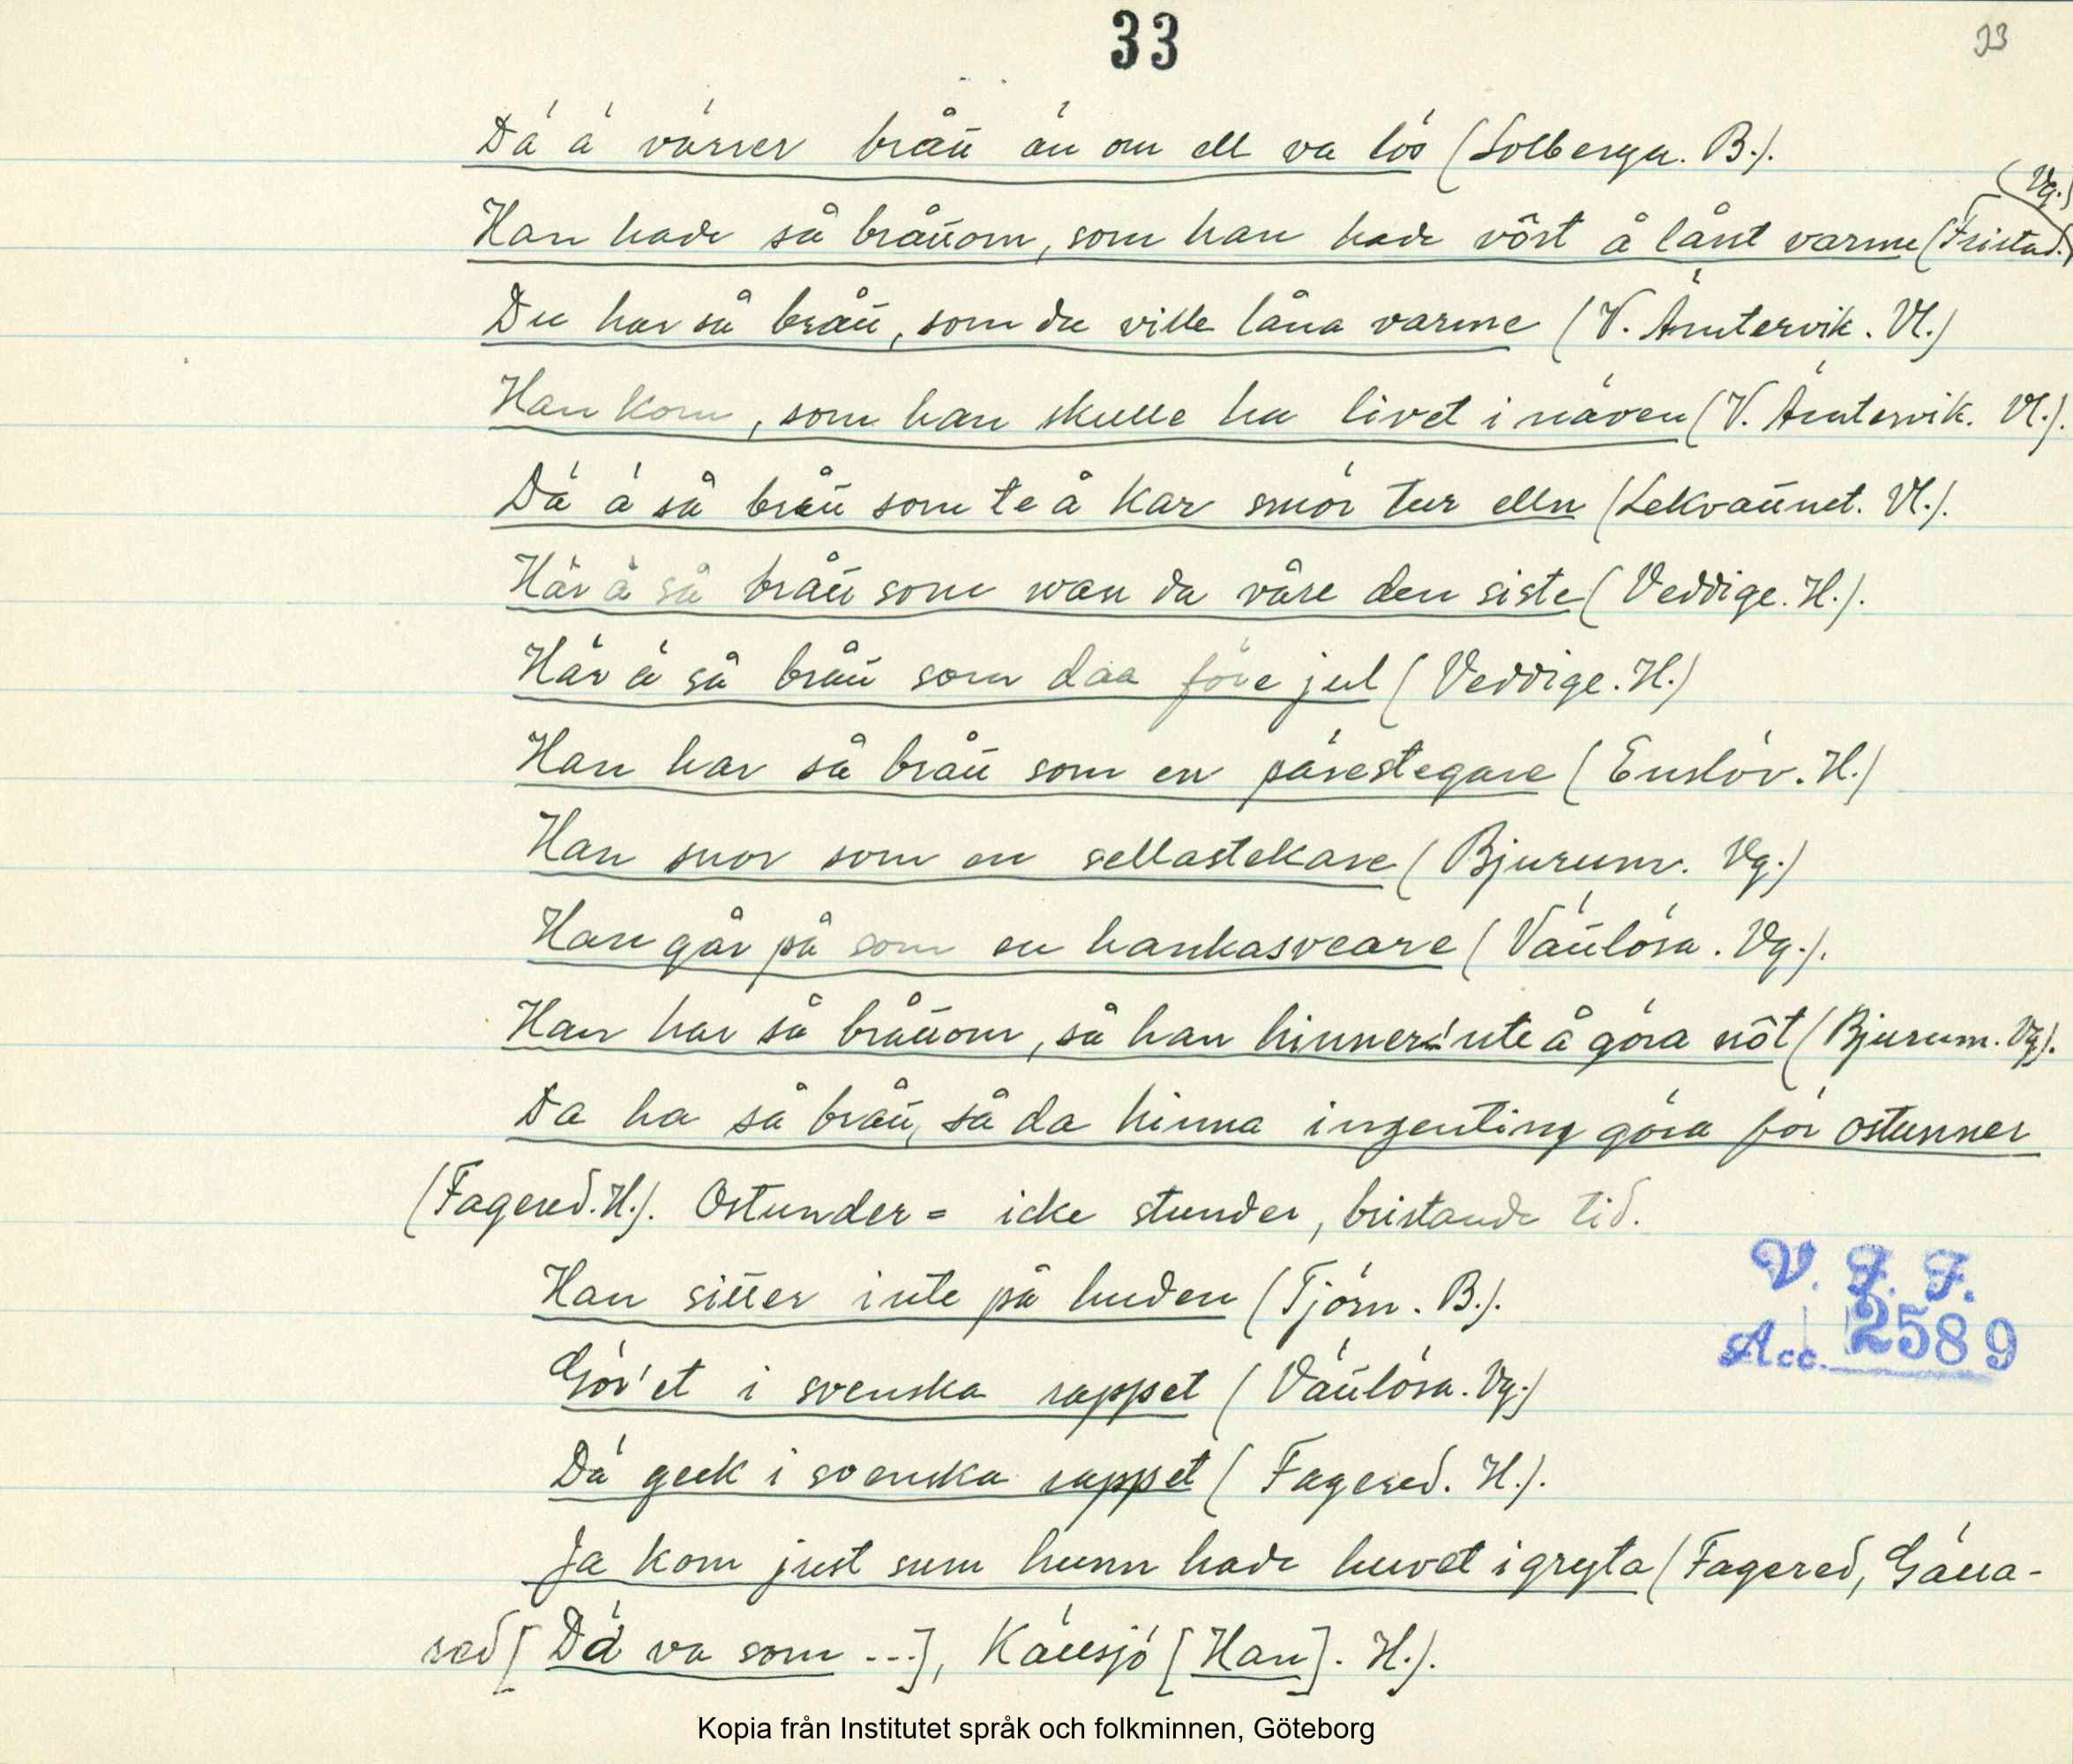 33
33
Dä ä värrer brått än om ell va lös (Solberga. B.).
(Vg.)
Han hade så bråttom, som han hade vôrt å lånt varme (Fristad.)
Du har så brått, som du ville låna varme (V. Ämtervik. Vl.)
Han kom, som han skulle ha livet i näven (V. Ämtervik. Vl.).
Dä ä så brått som te å kar smör tur elln (Lekvattnet. Vl.).
Här ä så brått som wan da våre den siste (Veddige. H.).
Här ä så brått som daa före jul (Veddige. H.)
Han har så brått som en pärestegare (Enslöv. H.)
Han snor som en sellastekare (Bjurum. Vg.)
Han går på som en hankasveare (Våulösa. Vg.).
Han har så bråttom, så han hinner inte å göra nôt (Bjurum. Vg).
Da ha så brått, så da hinna ingenting göra för ostunner
(Fagered. H.). Ostunder = icke stunder, bristande tid.
Han sitter inte på huden (Tjörn. B.).
V. F. F.
Gör'et i svenska rappet (Vättlösa. Vg.)
Acc. 2589
Dä geck i svenska rappet (Fagered. H.).
Ja kom just sum hunn hade huvet i gryta (Fagered, Gälla-
red [Dä va som ...], Källsjö [Han]. H.).
Kopia från Institutet språk och folkminnen, Göteborg